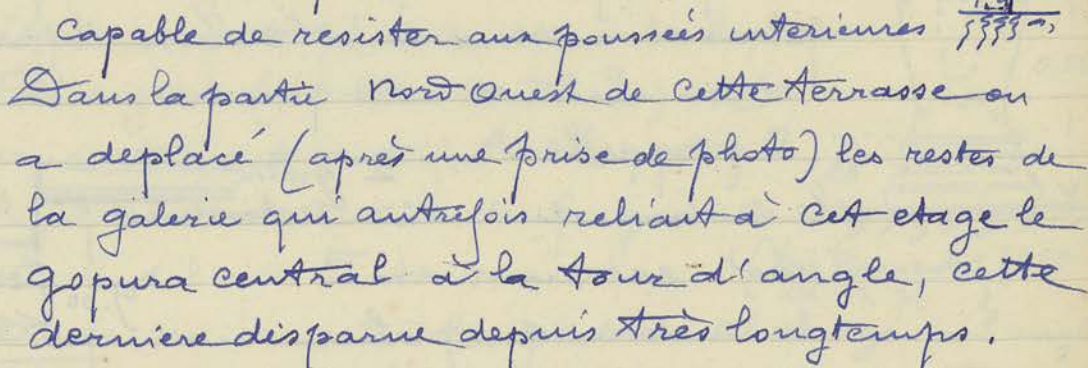 capable de resister aux poussées interieures
Dans la partie Nord Ouest de cette terrasse on
a deplacé (après une prise de photo) les restes de
la galerie qui autrefois reliait à cet etage le
gopura central à la tour d'angle, cette
derniere disparue depuis très longtemps.